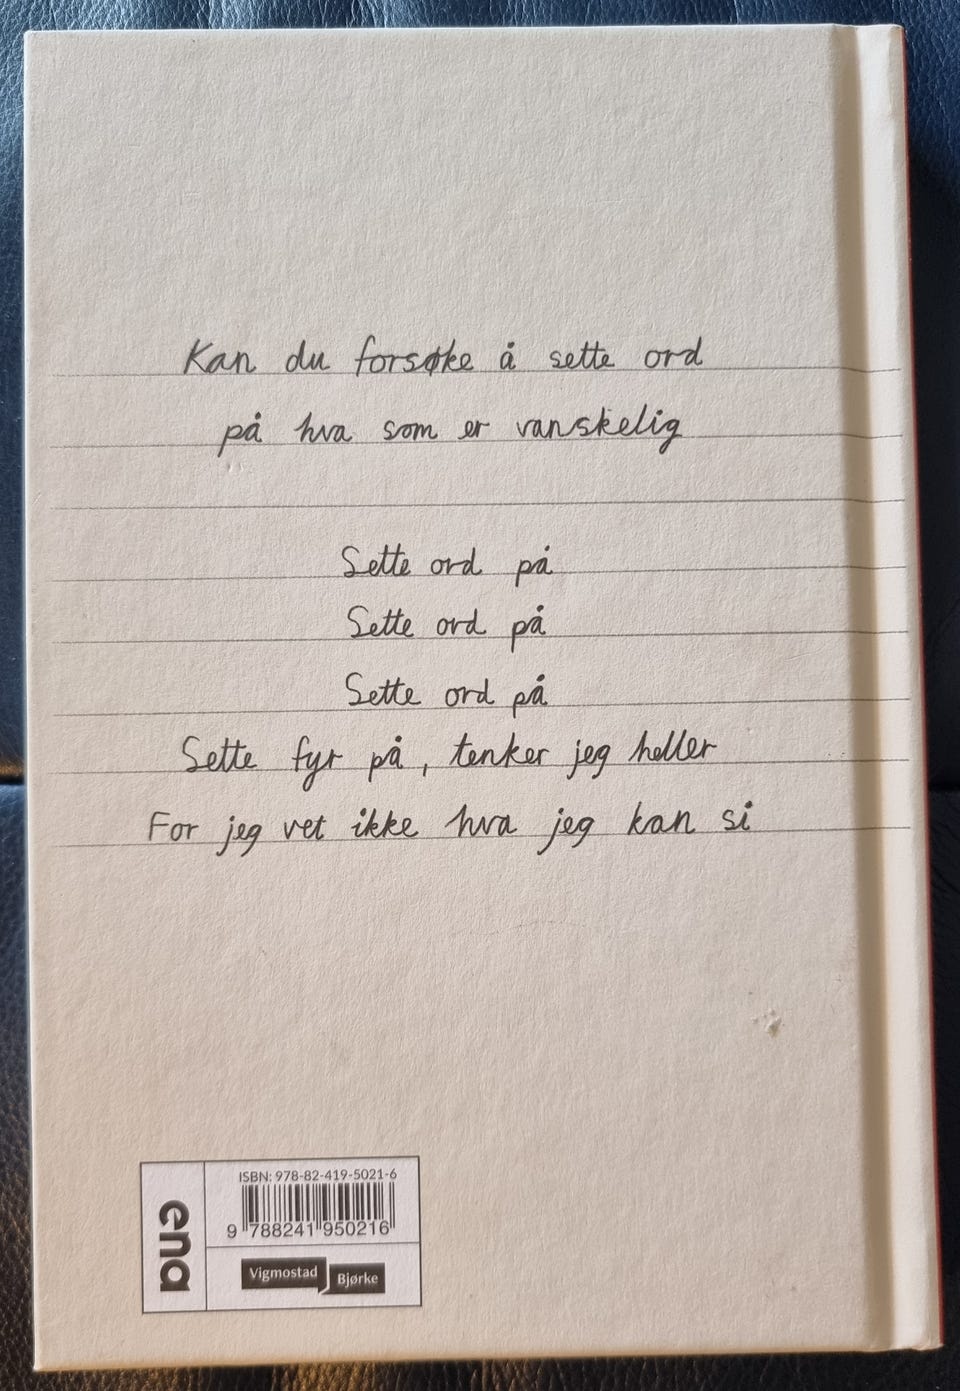 Kan du forsøke å sette ord
på hva som er vanskelig
Sette ord på
Sette ord på
Sette ord på
Sette fyr på, tenker jeg heller
For jeg vet ikke hva jeg kan si
ena
ISBN: 978-82-419-5021-6
9 788241 950216
Vigmostad Bjørke